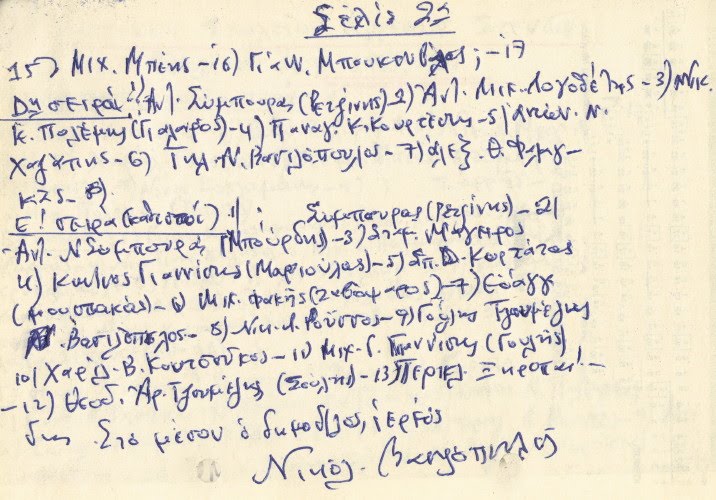 Σελίς 22
15) Μιχ. Μπέης - 16) Γιάν. Μπουκου ; - 17
Δη σειρά: 1) Αντ. Σύμπουρας (Ρετζίνης) - 2) Αντ. Μιχ. Λογοθέτης - 3) Νικ.
Κ. Πολέμης (Γιαλαρός) - 4) Παναγ. Κ. Κουρτέσης - 5) Αντών. Ν.
Χαζάπης - 6) Γκλ. Ν. Βασιλόπουλος - 7) Αλεξ. Θ. Φαλαγ-
κάς - 8)
Ε! σειρά (καθιστοί) 1) Σύμπουρας (Ρετζίνης) - 2)
- Αντ. Ν Σύμπουρας (Μπούρδης) - 3) Σταμ. Μάγειρος
4) Κων/νος Γιαννίσης (Μαριούλας) - 5) Σπ. Δ. Κορτάτας
(μουστακάς) - 6) Μιχ. Φακής - 7) Ευάγγ
Βασιλόπουλος - 8) Νικ. Α. Ρούσσος - 9) Γούλης Τζουμέλης
10) Χαρίλ. Β. Κουτσούκος - 11) Μιχ. Γ. Γιαννίσης (Γούλης)
- 12) Θεοδ. Αρ. Τζουμέλης (Σούλης) - 13) Περικλ. Ξηροπαϊ -
δης. Στο μέσον ο δημοδ/λος, ιερεύς
Νικόλ. Βασιλόπουλος